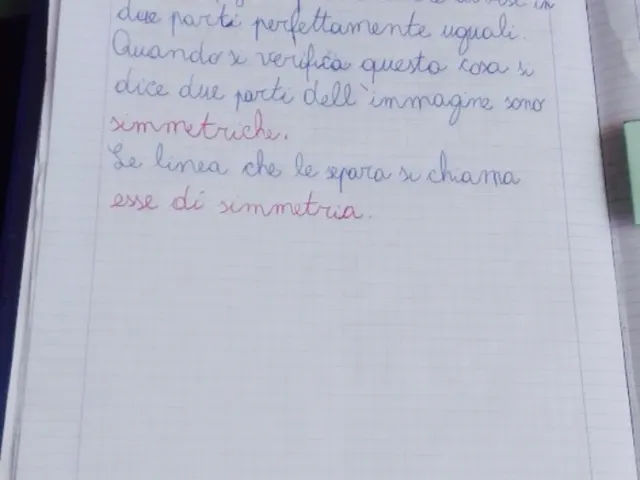 in
due parti perfettamente uguali.
Quando si verifica questa cosa si
dice due parti dell'immagine sono
simmetriche.
Le linea che le separa si chiama
esse di simmetria.